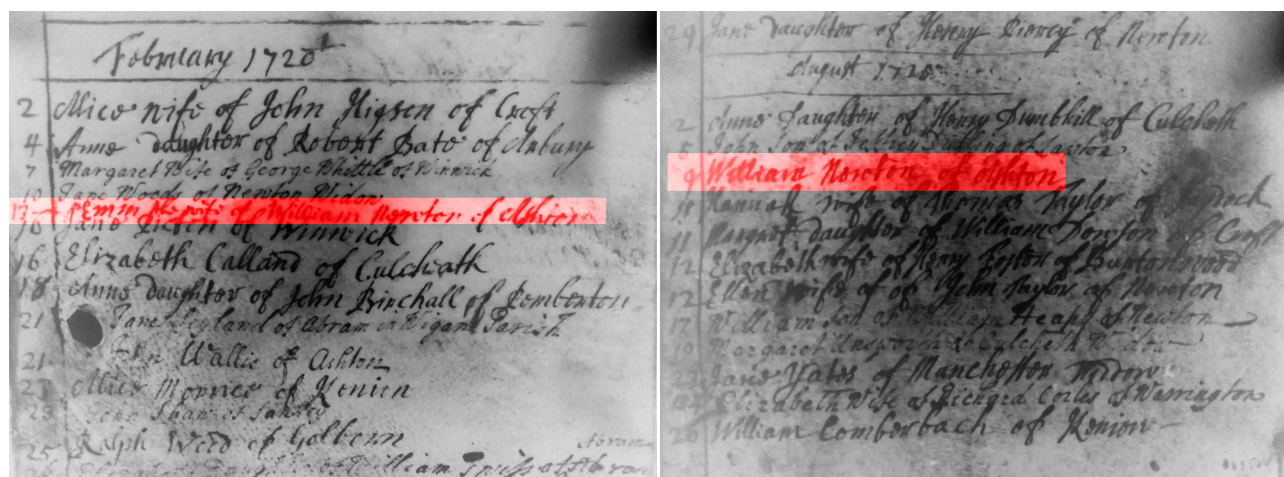 February 1720
2 Alice wife of John Higson of Croft
4 Anne daughter of Robert Bate of Arbury
7 Margaret Wife of George Whittle of Winwick
10 Jane Woods of Newton Widow
13 the wife of William Newton of Ashton
16 Jane of Winwick
16 Elizabeth Calland of Culcheath
18 Anne daughter of John Birchall of Pemberton
21 Jane of Abram in Wigan Parish
21 John Wallis of Ashton
23 Alice Morrice of Kenion
23 of Sankey
25 Ralph of Golborn
Abram
29 Jane daughter of Henry Piercy of Newton
August 1720
2 Anne Daughter of Henry Dumbhill of Culcheth
5 John Son of Jeffrey of
9 William Newton of Ashton
11 Hannah wife of Thomas Taylor of
11 Margret daughter of William Dowson of Croft
12 Elizabeth wife of Henry Foster of Burtonwood
12 Ellen wife of of John Taylor of Newton
17 William Son of William Heap of Newton
19 Margaret Unsworth of Culcheth Widow
Jane Yates of Manchester widow
Elizabeth Wife of Richard Coiles of Warrington
26 William Comberbach of Kenion